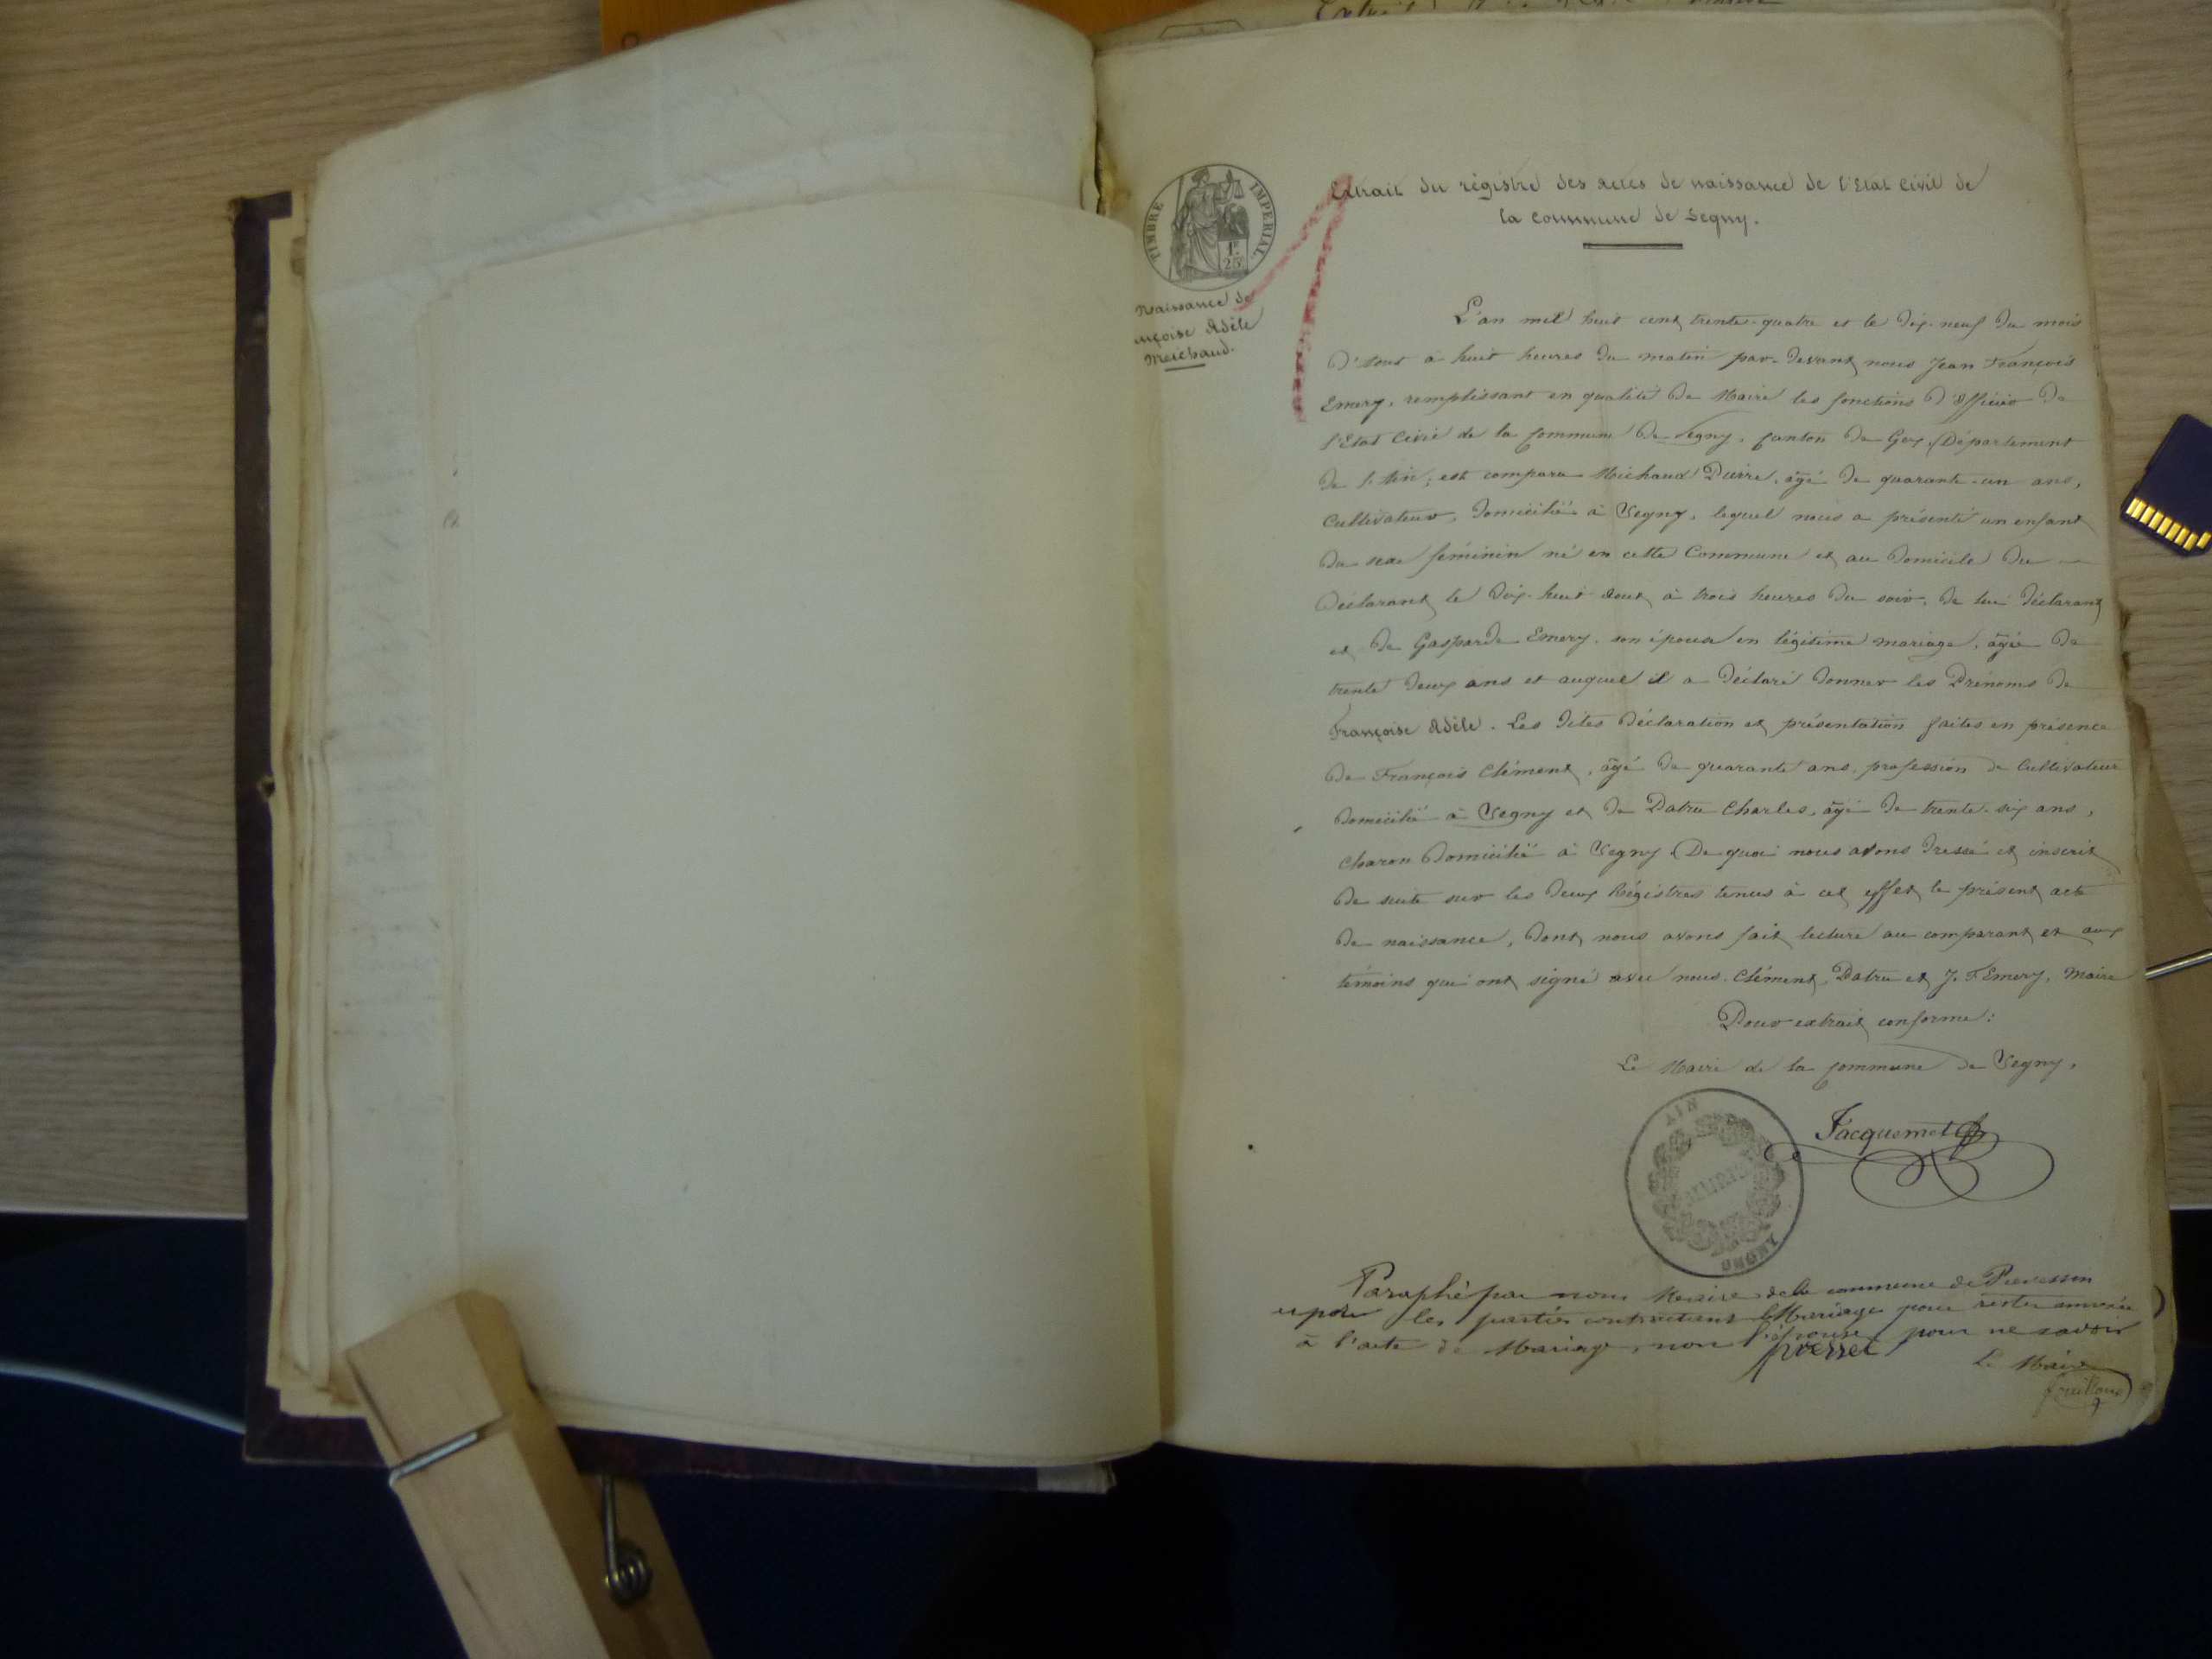 Extrait du régistre des actes de naissance de l'Etat Civil de
la Commune de Segny.
TIMBRE IMPERIAL.
1F.
25
Naissance de
nçoise Adèle
Michaud.
L'an mil huit cent trente-quatre et le dix-neuf du mois
d'Aout à huit heures du matin par-devant nous Jean François
Emery, remplissant en qualité de Maire les fonctions d'Officier de
l'Etat Civil de la Commune de Segny, Canton de Gex, Département
de l'Ain, est comparu Michaud Pierre, âgé de quarante-un ans,
Cultivateur, domicilié à Segny, lequel nous a présenté un enfant
du sexe féminin né en cette Commune et au domicile du
Déclarant le dix-huit Aout à trois heures du soir, de lui déclarant
et de Gasparde Emery, son épouse en légitime mariage, âgée de
trente deux ans et auquel il a déclaré donner les Prénoms de
Françoise Adèle. Les dites déclaration et présentation faites en présence
de François Clément, âgé de quarante ans, profession de Cultivateur
domicilié à Segny et de Datru Charles, âgé de trente-six ans,
Charon domicilié à Segny. De quoi nous avons dressé et inscrit
de suite sur les deux Régistres tenus à cet effet le présent acte
de naissance, dont nous avons fait lecture au comparant et aux
témoins qui ont signé avec nous. Clément, Datru et J. F. Emery, Maire
Pour extrait conforme:
Le Maire de la Commune de Segny,
Jacquemet
AIN
Paraphé par nous Maire de la commune de Prevessin
et par les parties contractant Mariage pour rester annexé
à l'acte de Mariage, non l'épouse pour ne savoir
Le Maire